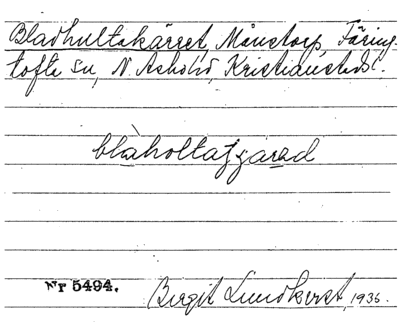 Bladhultakärret, Månstorp, Färing-
tofta sn, N. Åsbo hd, Kristianstads l.
blaholtatjärad
Nr 5494.
Birgit Lundkvist, 1936.